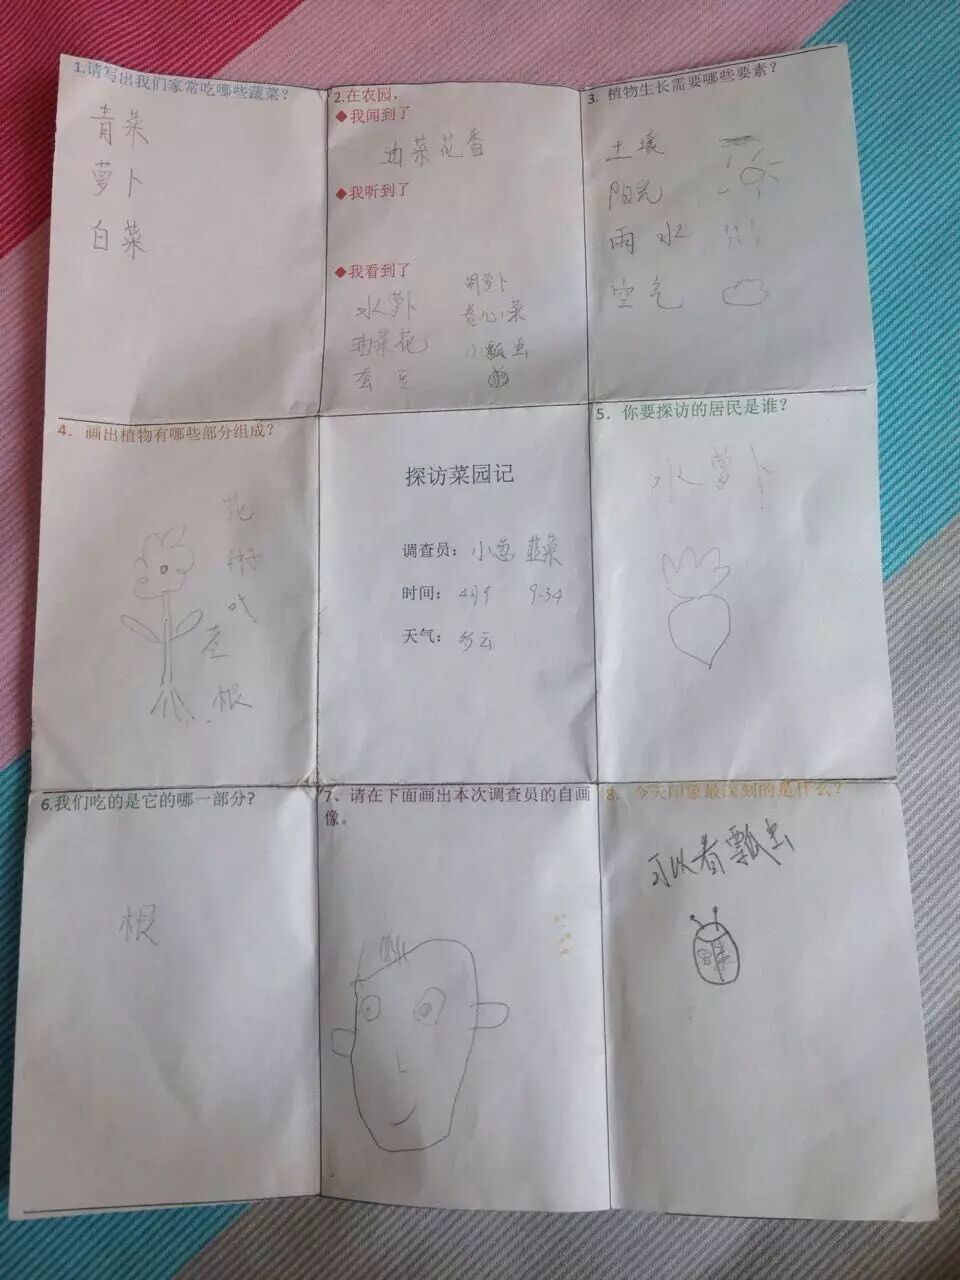 1.请写出我们家常吃哪些蔬菜?
青菜
萝卜
白菜
2.在农园，
◆我闻到了
油菜花香
◆我听到了
◆我看到了
水萝卜
油菜花
胡萝卜
卷心菜
小瓢虫
3. 植物生长需要哪些要素?
土壤
阳光
雨水
空气
4. 画出植物有哪些部分组成?
花
叶
根
探访菜园记
调查员: 小葱 韭菜
时间: 4月9 9-34
天气: 多云
5. 你要探访的居民是谁?
水萝卜
6.我们吃的是它的哪一部分?
根
7、请在下面画出本次调查员的自画
像。
8. 今天印象最深刻的是什么?
可以看瓢虫